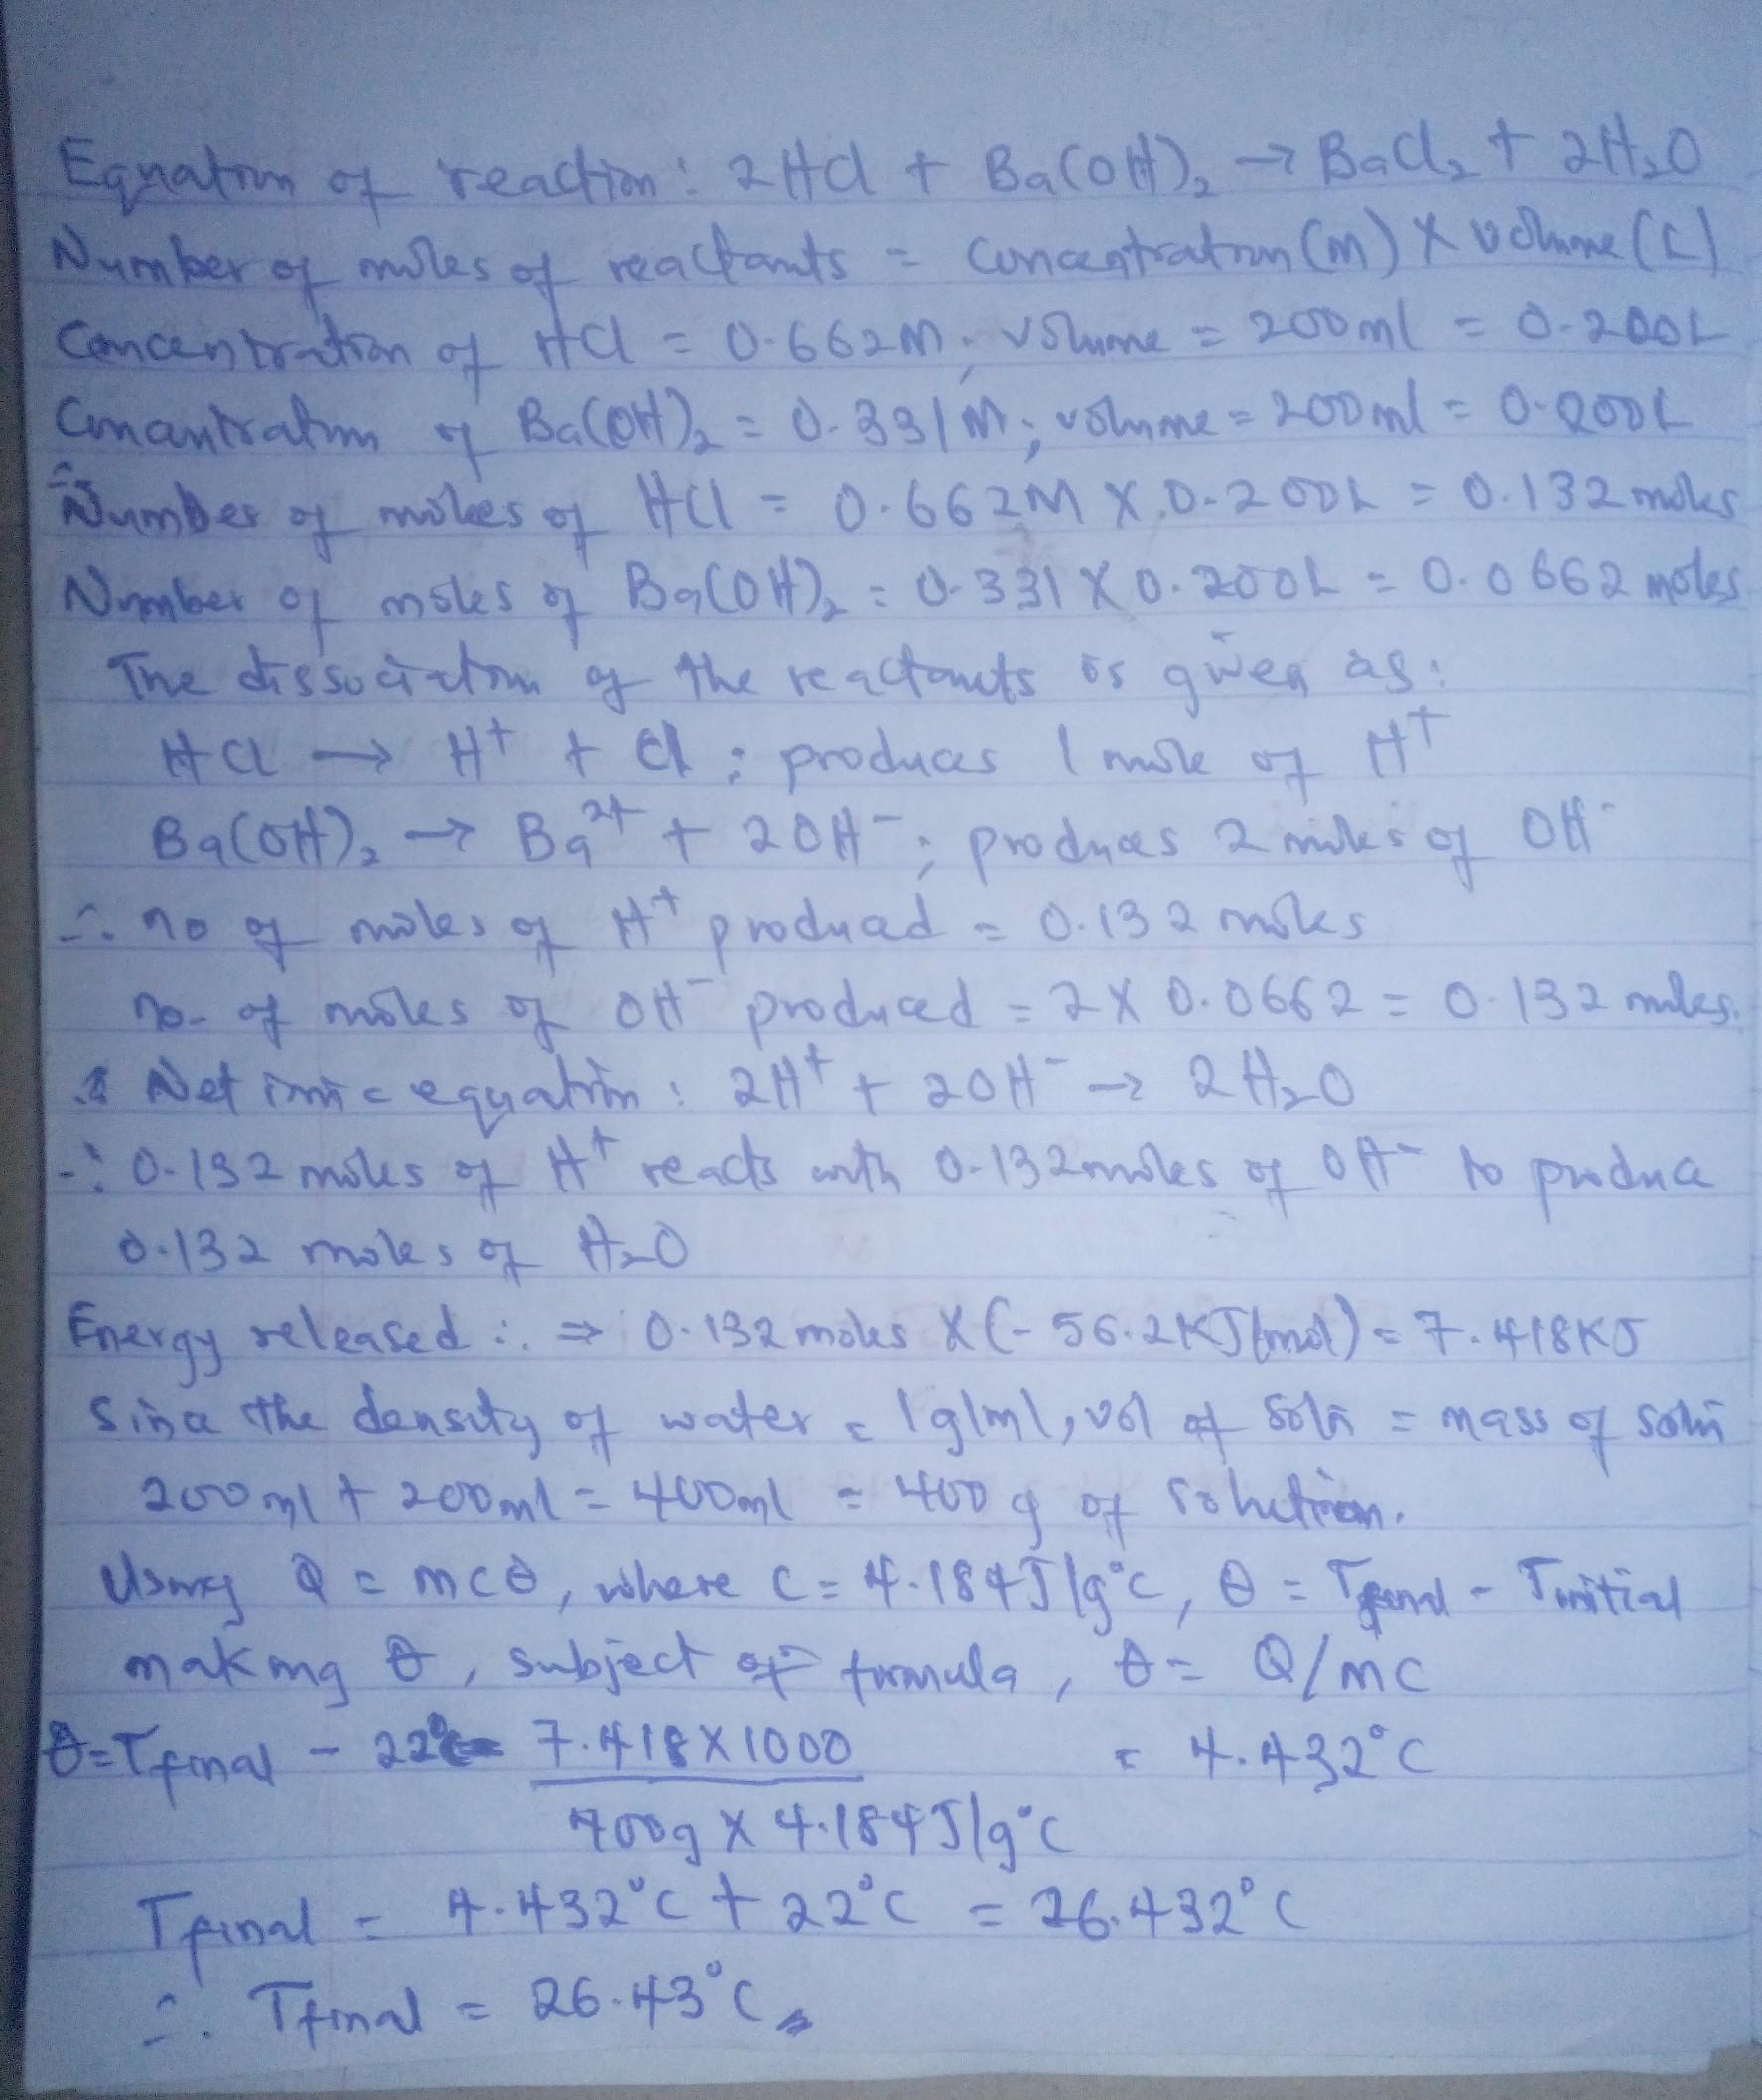 Equation of reaction: 2HCl + Ba(OH)₂ → BaCl₂ + 2H₂O
Number of moles of reactants = Concentration (m) X volume (L)
Concentration of HCl = 0.662M; volume = 200ml = 0.200L
Concentration of Ba(OH)₂ = 0.331M; volume = 200ml = 0.200L
Number of moles of HCl = 0.662M X 0.200L = 0.132 moles
Number of moles of Ba(OH)₂ = 0.331 X 0.200L = 0.0662 moles
The dissociation of the reactants is given as:
HCl → H⁺ + Cl; produces 1 mole of H⁺
Ba(OH)₂ → Ba²⁺ + 2OH⁻; produces 2 moles of OH⁻
∴ no of moles of H⁺ produced = 0.132 moles
no. of moles of OH⁻ produced = 2 X 0.0662 = 0.132 moles.
Net ionic equation: 2H⁺ + 2OH⁻ → 2H₂O
∴ 0.132 moles of H⁺ reacts with 0.132moles of OH⁻ to produce
0.132 moles of H₂O
Energy released ∴ ⇒ 0.132 moles X (-56.2KJ/mol) = 7.418KJ
Since the density of water = 1g/ml, vol of soln = mass of soln
200ml + 200ml = 400ml = 400g of solution.
Using Q = mcθ, where C = 4.184J/g°C, θ = Tfinal - Tinitial
making θ, subject of formula, θ = Q/mc
θ = Tfinal - 22°C = 7.418X1000 = 4.432°C
400g X 4.184J/g°C
Tfinal = 4.432°C + 22°C = 26.432°C
∴ Tfinal = 26.43°C